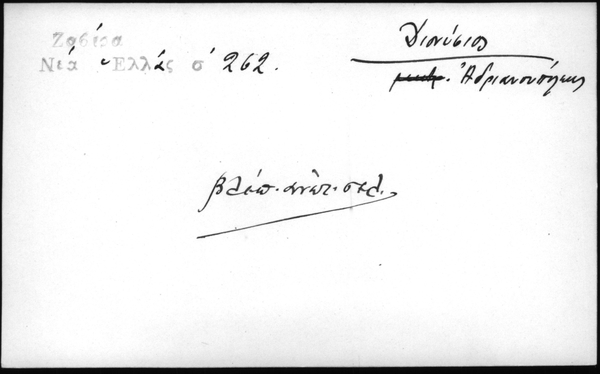 Ζαβίρα
Νέα Ἑλλάς σ 262.
Διονύσιος
Ἀδριανουπόλεως
βλέπ. ἀνωτ. σελ.